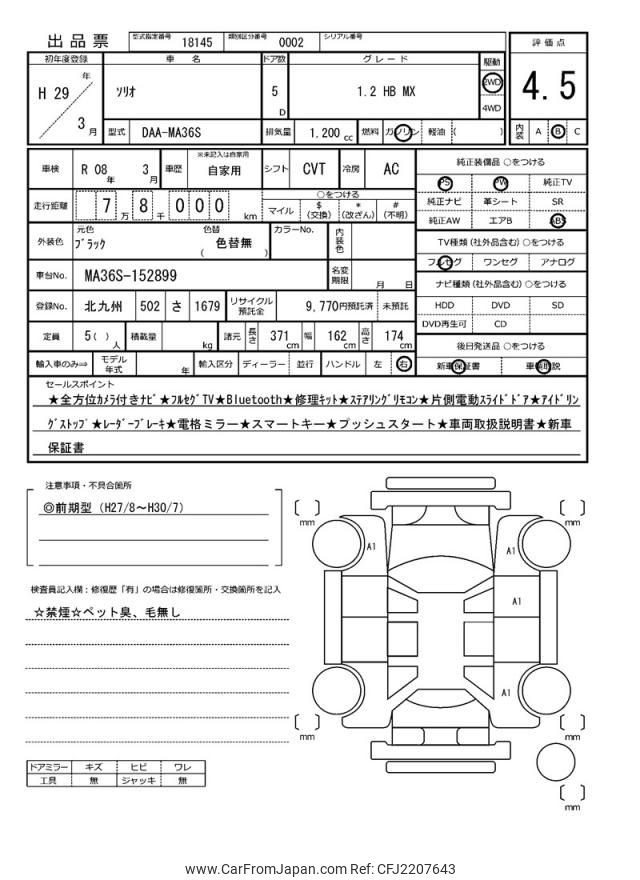 出品票 型式指定番号 18145 類別区分番号 0002 シリアル番号
初年度登録 車名 ドア数 グレード 駆動 評価点
H 29 年 3 月 ソリオ 5 D 1.2 HB MX 2WD 4WD 4.5
型式 DAA-MA36S 排気量 1.200 cc 燃料 ガソリン 軽油 ( ) 内装 A B C
車検 R 08 年 3 月 車歴 ※未記入は自家用 自家用 シフト CVT 冷房 AC
純正装備品 ○をつける
PS PW 純正TV
純正ナビ 革シート SR
純正AW エアB ABS
走行距離 7 万 8 千 0 0 0 km ○をつける マイル $(交換) *(改ざん) #(不明)
外装色 元色 ブラック 色替 ( 色替無 ) カラーNo. 内装色
TV種類 (社外品含む) ○をつける
フルセグ ワンセグ アナログ
車台No. MA36S-152899 名変期限 月 日
ナビ種類 (社外品含む) ○をつける
HDD DVD SD
DVD再生可 CD
登録No. 北九州 502 さ 1679 リサイクル預託金 9,770円預託済 未預託
定員 5 ( ) 人 積載量 kg 諸元 長さ 371 cm 幅 162 cm 高さ 174 cm
後日発送品 ○をつける
新車保証書 車輌取説
輸入車のみ⇒ モデル年式 年 輸入区分 ディーラー 並行 ハンドル 左 右
セールスポイント
★全方位カメラ付きナビ★フルセグTV★Bluetooth★修理キット★ステアリングリモコン★片側電動スライドドア★アイドリン
グストップ★レーダーブレーキ★電格ミラー★スマートキー★プッシュスタート★車両取扱説明書★新車
保証書
注意事項・不具合箇所
◎前期型 (H27/8～H30/7)
検査員記入欄：修復歴「有」の場合は修復箇所・交換箇所を記入
☆禁煙☆ペット臭、毛無し
mm mm
A1 A1
A1
A1
mm mm
mm
ドアミラー キズ ヒビ ワレ
工具 無 ジャッキ 無
www.CarFromJapan.com Ref: CFJ2207643